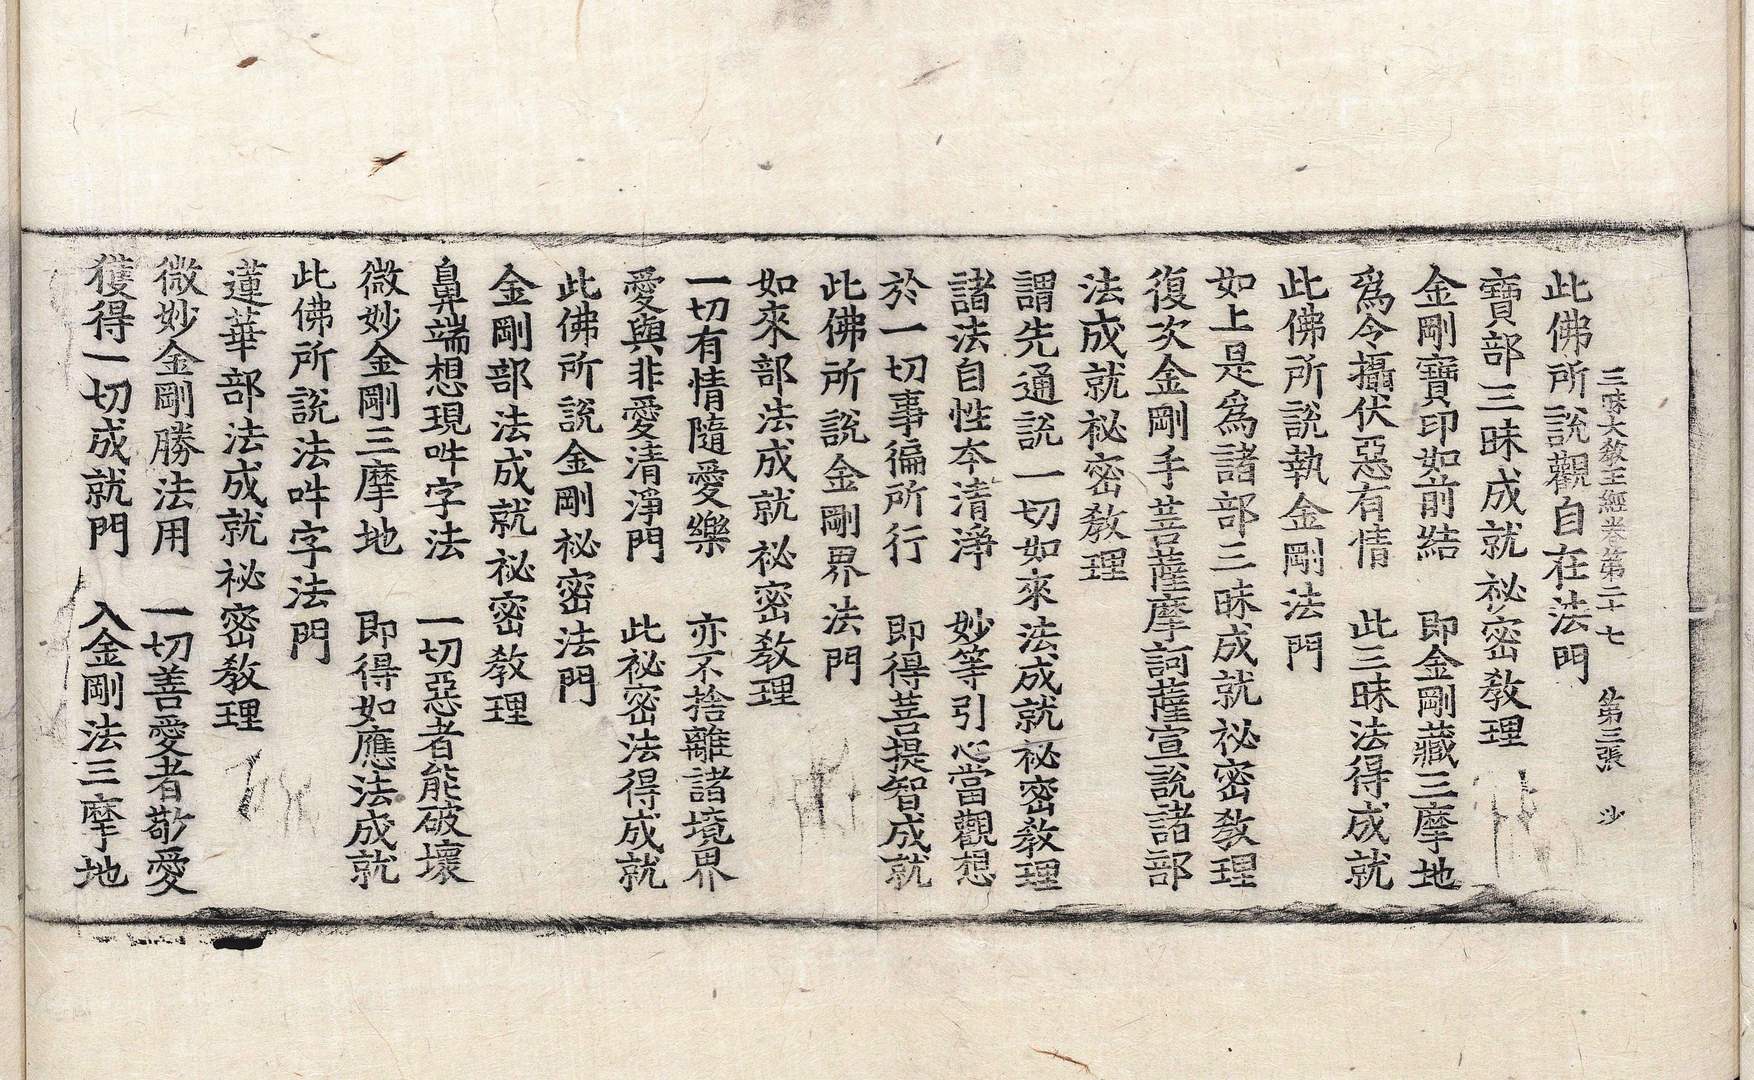 三昧大敎王經卷第二十七 第三張 沙
此佛所說觀自在法門
寶部三昧成就祕密敎理
金剛寶印如前結 即金剛藏三摩地
爲令攝伏惡有情 此三昧法得成就
此佛所說執金剛法門
如上是爲諸部三昧成就祕密敎理
復次金剛手菩薩摩訶薩宣說諸部
法成就祕密敎理
謂先通說一切如來法成就祕密敎理
諸法自性本清淨 妙等引心當觀想
於一切事徧所行 即得菩提智成就
此佛所說金剛界法門
如來部法成就祕密敎理
一切有情隨愛樂 亦不捨離諸境界
愛與非愛清淨門 此祕密法得成就
此佛所說金剛祕密法門
金剛部法成就祕密敎理
鼻端想現吽字法 一切惡者能破壞
微妙金剛三摩地 即得如應法成就
此佛所說法吽字法門
蓮華部法成就祕密敎理
微妙金剛勝法用 一切善愛者敬愛
獲得一切成就門 入金剛法三摩地